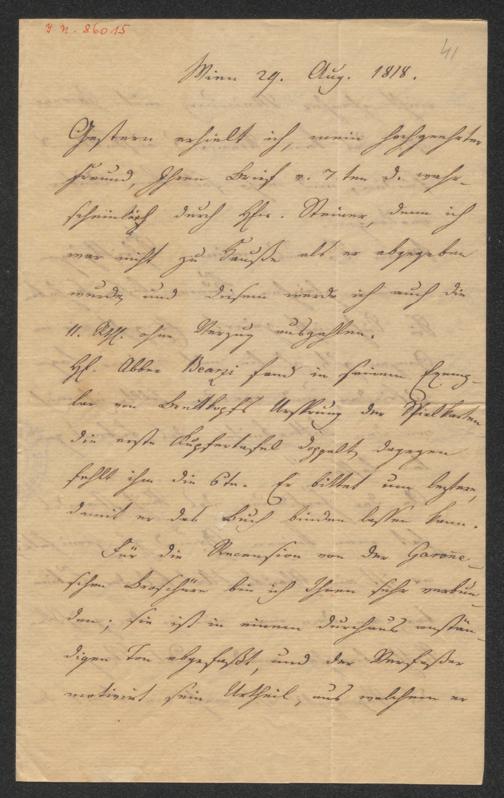 I. N. 86015
41
Wien 29. Aug. 1818.
Gestern erhielt ich, mein hochgeehrter
Freund, Ihren Brief v. 7ten d. wahr-
scheinlich durch Hrn. Steiner, denn ich
war nicht zu Hauße als er abgegeben
wurde, und diesem werde ich auch die
11. ohne Verzug auszahlen.
Hr. Abbee Bearzi fand in seinem Exemp-
lar von Breitkopfs Ursprung der Spielkarten
die erste Kupfertafel doppelt, dagegen
fehlt ihm die 6te. Er bittet um leztere,
damit er das Buch binden lassen kann.
Für die Recension von der Garone-
schen Broschüre bin ich Ihnen sehr verbun-
den; sie ist in einem durchaus anstän-
digen Ton abgefaßt, und der Verfaßer
motivirt sein Urtheil, aus welchem er